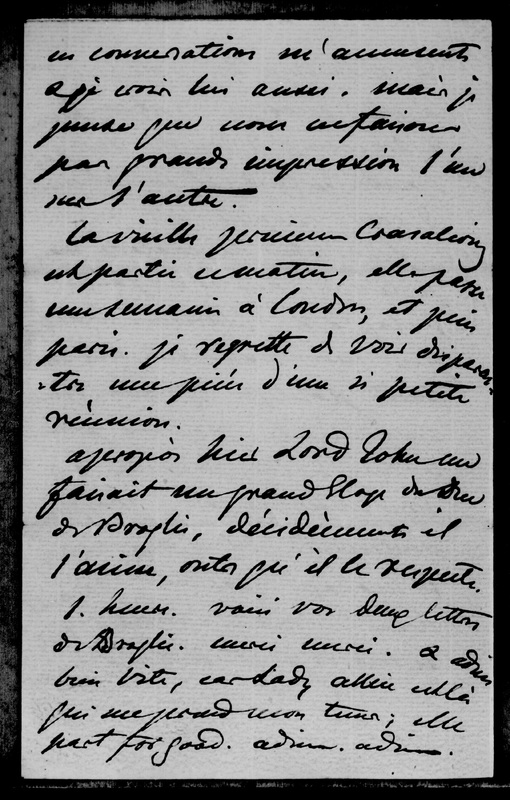 ses conversations m'amusent
et je crois lui aussi. mais je
pense que nous ne faisons
pas grande impression l'un
sur l'autre.
la vieille princesse
est partie ce matin, elle passe
une semaine à Londres, et puis
paris. je regrette de voir dispara-
-itre une pièce d'une si petite
réunion.
apropos hier Lord John me
faisait un grand Eloge du Duc
de Broglie, décidément il
l'aime, outre qu'il le respecte.
1. heure. voici vos deux lettres
de Broglie. merci merci. & adieu
bien vite, car Lady allice est là
qui me prend mon tems; elle
part for good. adieu. adieu.